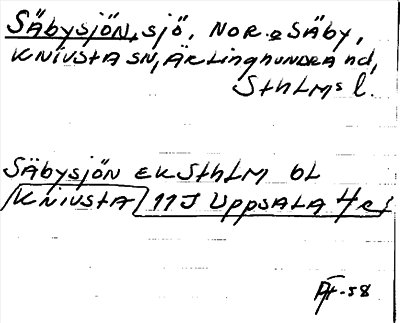 Säbysjön, sjö, NOR. Säby,
Knivsta sn, Ärlinghundra hd,
Sthlms l.
Säbysjön ek Sthlm bl
Knivsta 11J Uppsala 4e
-58